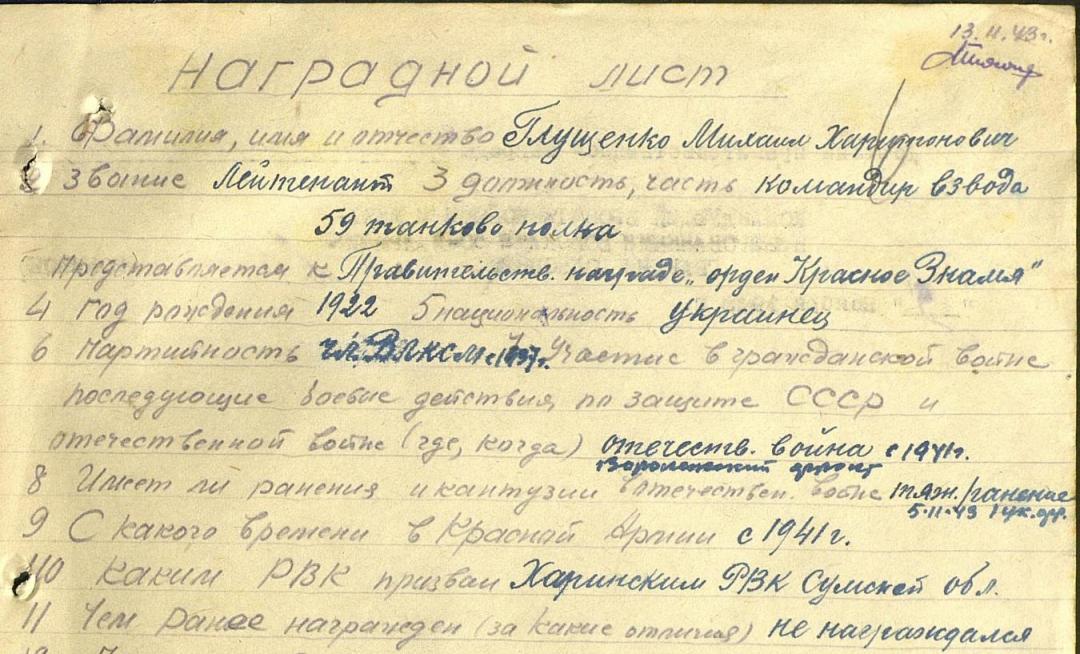 13.11.43г.
Наградной лист
1. Фамилия, имя и отчество Глущенко Михаил Харитонович
2 Звание Лейтенант 3 должность, часть командир взвода
59 танково полка
Представляется к Правительств. награде „орден "Красное Знамя"
4 Год рождения 1922 5 национальность украинец
6 Партийность чл. ВЛКСМ с 1937г. 7 Участие в гражданской войне
последующие боевые действия по защите СССР и
отечественной войне (где, когда) отечеств. война с 1941г.
Воронежский фронт
8 Имеет ли ранения и кантузии в отечествен. войне тяж. ранение
5.11.43 1 ук. фр.
9 С какого времени в Красной Армии с 1941г.
10 Каким РВК призван Харинским РВК Сумской обл.
11 Чем ранее награжден (за какие отличия) не награждался